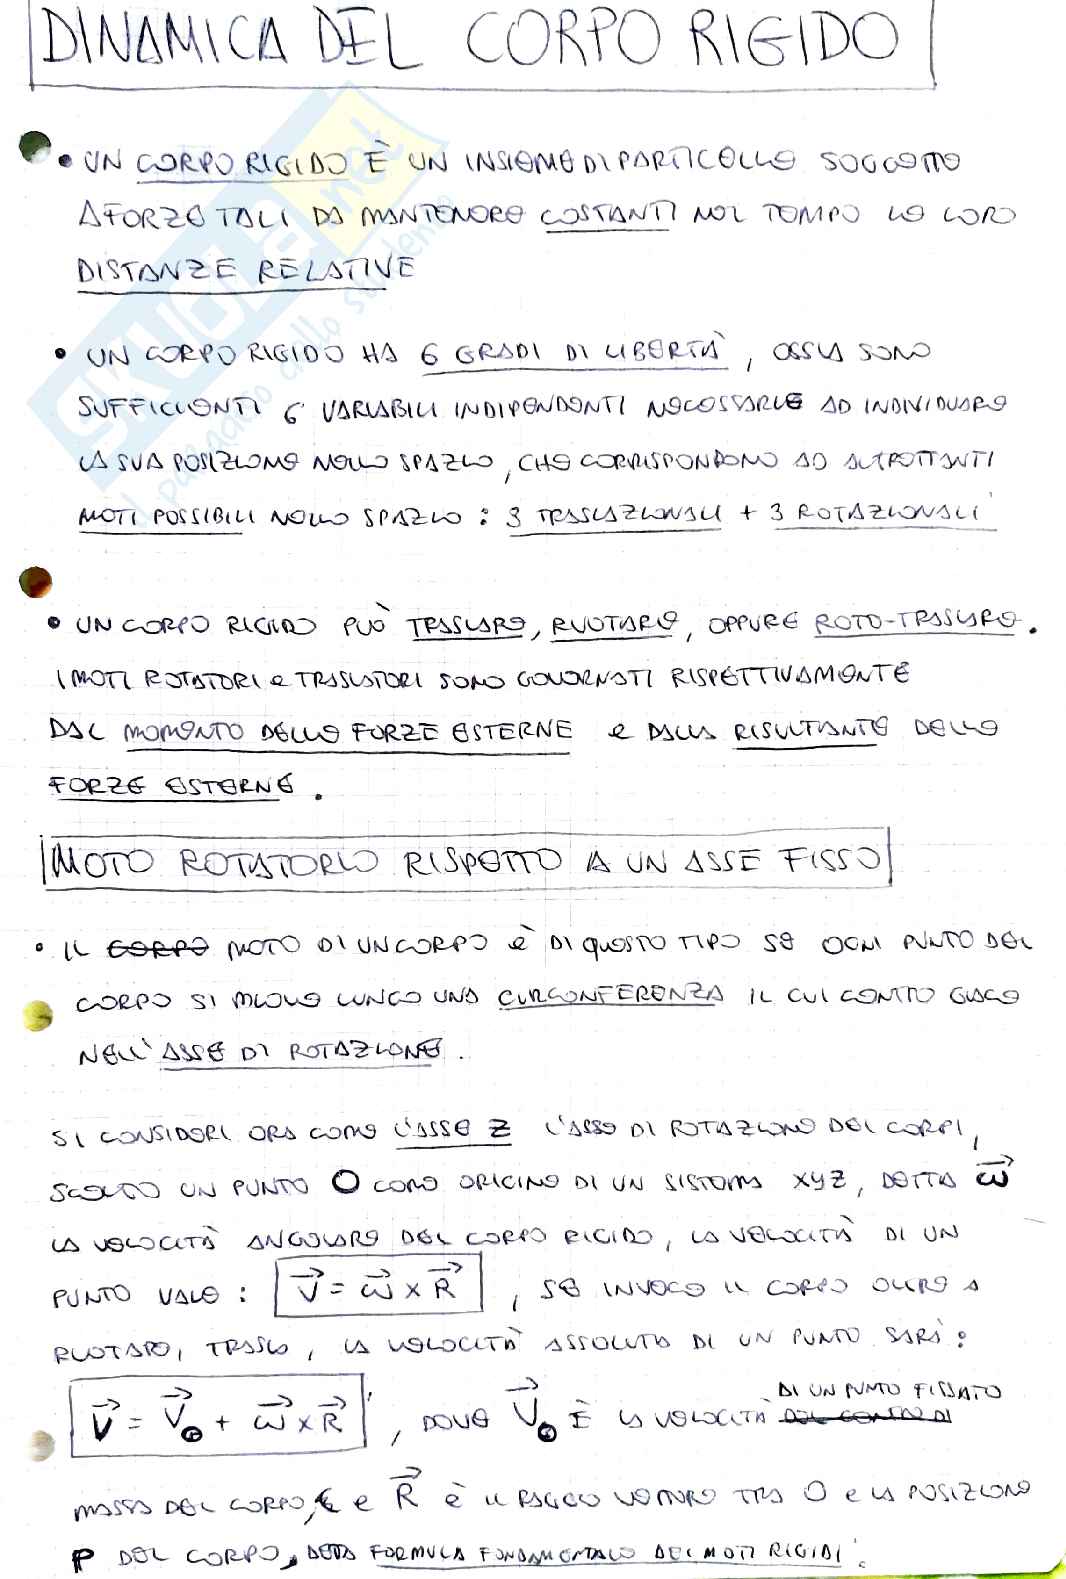 DINAMICA DEL CORPO RIGIDO
• UN CORPO RIGIDO È UN INSIEME DI PARTICELLE SOGGETTE
A FORZE TALI DA MANTENERE COSTANTI NEL TEMPO LE LORO
DISTANZE RELATIVE
• UN CORPO RIGIDO HA 6 GRADI DI LIBERTÀ, OSSIA SONO
SUFFICIENTI 6 VARIABILI INDIPENDENTI NECESSARIE AD INDIVIDUARE
LA SUA POSIZIONE NELLO SPAZIO, CHE CORRISPONDONO AD ALTRETTANTI
MOTI POSSIBILI NELLO SPAZIO: 3 TRASLAZIONALI + 3 ROTAZIONALI
• UN CORPO RIGIDO PUÒ TRASLARE, RUOTARE, OPPURE ROTO-TRASLARE.
I MOTI ROTATORI e TRASLATORI SONO GOVERNATI RISPETTIVAMENTE
DAL MOMENTO DELLE FORZE ESTERNE e DALLA RISULTANTE DELLE
FORZE ESTERNE.
MOTO ROTATORIO RISPETTO A UN ASSE FISSO
• IL CORPO MOTO DI UN CORPO è DI QUESTO TIPO SE OGNI PUNTO DEL
CORPO SI MUOVE LUNGO UNA CIRCONFERENZA IL CUI CENTRO GIACE
NELL'ASSE DI ROTAZIONE.
SI CONSIDERI ORA COME L'ASSE Z L'ASSE DI ROTAZIONE DEI CORPI,
SCELTO UN PUNTO O COME ORIGINE DI UN SISTEMA XYZ, DETTA ω⃗
LA VELOCITÀ ANGOLARE DEL CORPO RIGIDO, LA VELOCITÀ DI UN
PUNTO VALE: V⃗ = ω⃗ × R⃗, SE INVECE IL CORPO OLTRE A
RUOTARE, TRASLA, LA VELOCITÀ ASSOLUTA DI UN PUNTO SARÀ:
V⃗ = V⃗₀ + ω⃗ × R⃗, DOVE V⃗₀ È LA VELOCITÀ DI UN PUNTO FISSATO DEL CENTRO DI
MASSA DEL CORPO, e R⃗ è IL RAGGIO VETTORE TRA O e LA POSIZIONE
P DEL CORPO, DETTA FORMULA FONDAMENTALE DEI MOTI RIGIDI.
SKUOLA.net
il paradiso dello studente